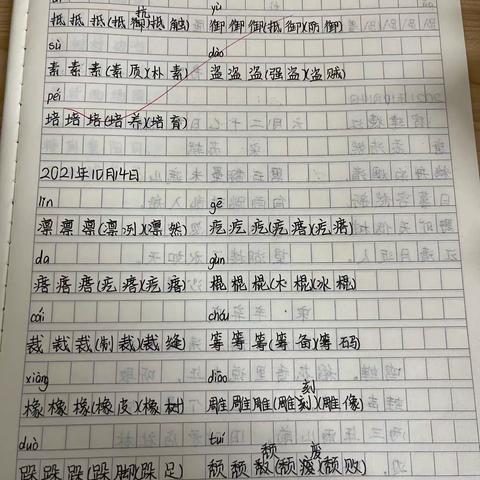 yù
抵 抵 抵(抵御)(抵触) 御 御 御(抵御)(防御)
抗
sù dào
素 素 素(素质)(朴素) 盗 盗 盗(强盗)(盗贼)
péi
培 培 培(培养)(培育)
2021年10月14日
lǐn gē
凛 凛 凛(凛冽)(凛然) 疙 疙 疙(疙瘩)(疙瘩)
da gùn
瘩 瘩 瘩(疙瘩)(疙瘩) 棍 棍 棍(木棍)(冰棍)
cái chóu
裁 裁 裁(制裁)(裁缝) 筹 筹 筹(筹备)(筹码)
xiàng diāo
刻
橡 橡 橡(橡皮)(橡树) 雕 雕 雕(雕刻)(雕像)
duò tuí
颓 废
跺 跺 跺(跺脚)(跺足) 颓 颓 颓(颓废)(颓败)